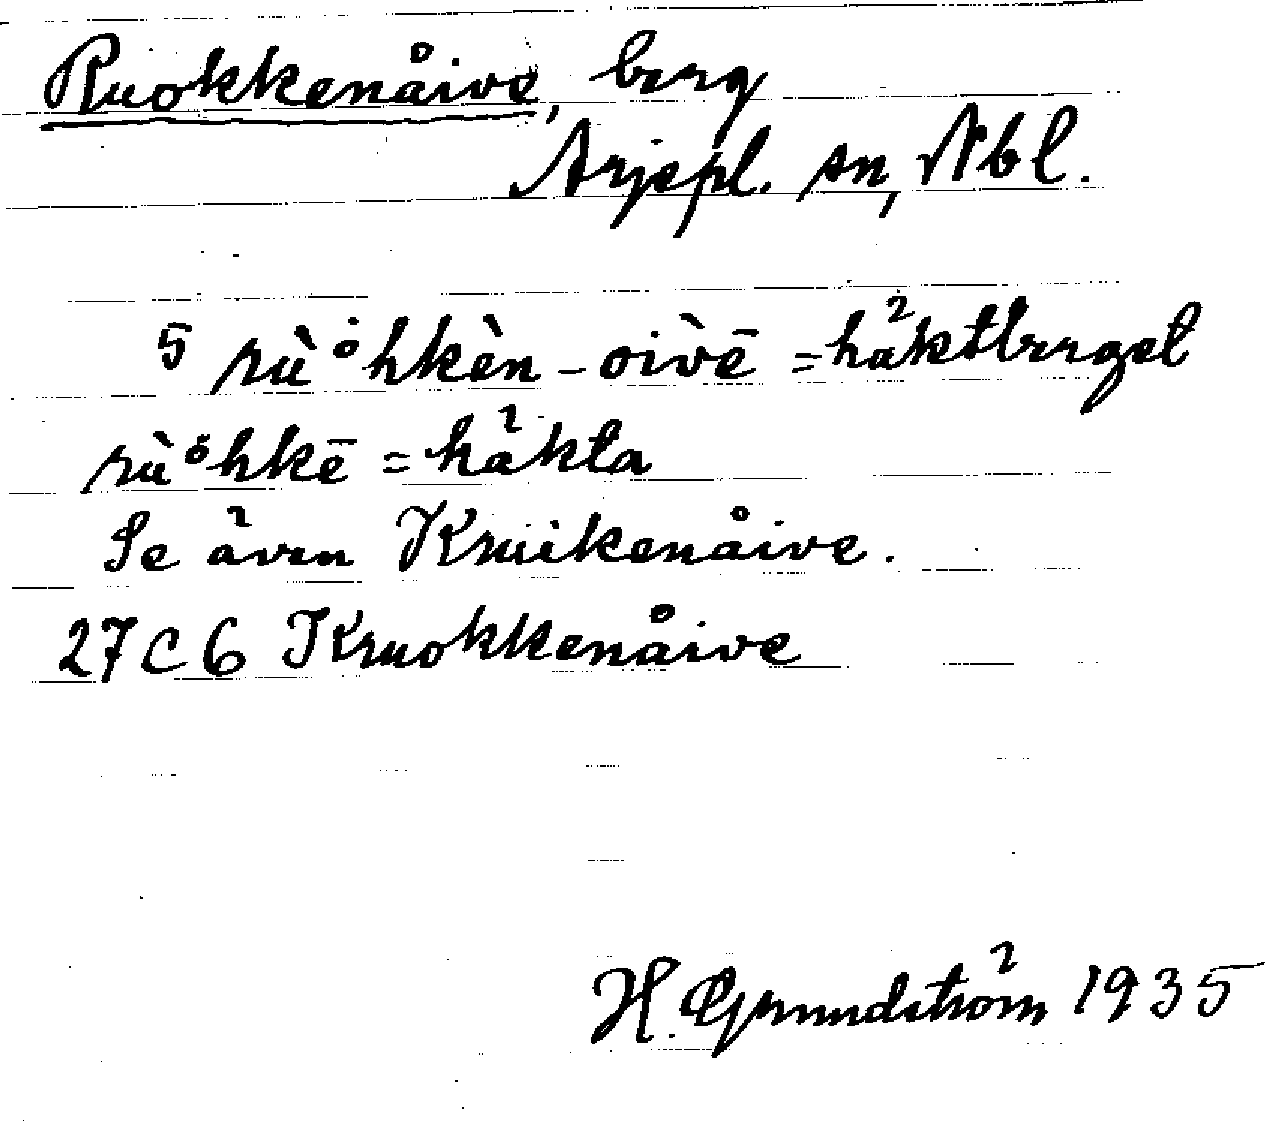 Ruokkenåive, berg
Arjepl. sn, Nbl.
5 rù̊ohkèn-oivē = häktberget
rùo̊hkē = häkta
Se även Kruikenåive.
27C6 Kruokkenåive
H. Grundström 1935